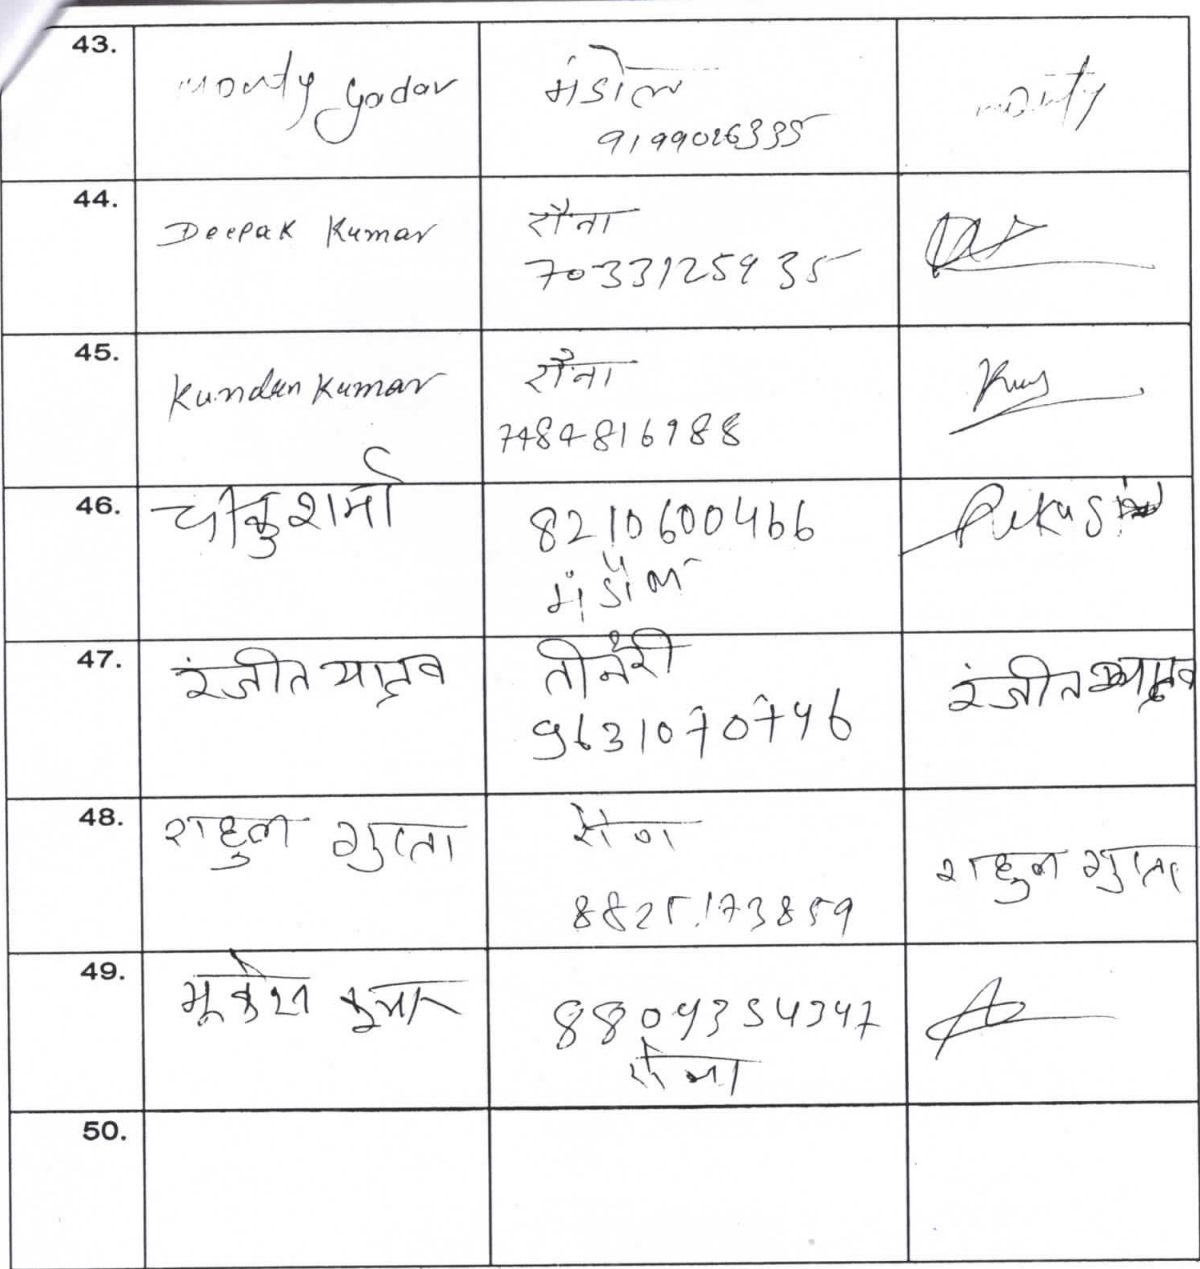 43.
Monty Yadav
मंडोल
9199026335
Monty
44.
Deepak Kumar
रौना
7033125935
45.
Kundan Kumar
रौना
7484816988
46.
चीकु शर्मा
8210600466
मंडोल
47.
रंजीत यादव
9631070746
रंजीत यादव
48.
राहुल गुप्ता
8825173859
राहुल गुप्ता
49.
मुकेश कुमार
8809354347
रौना
50.